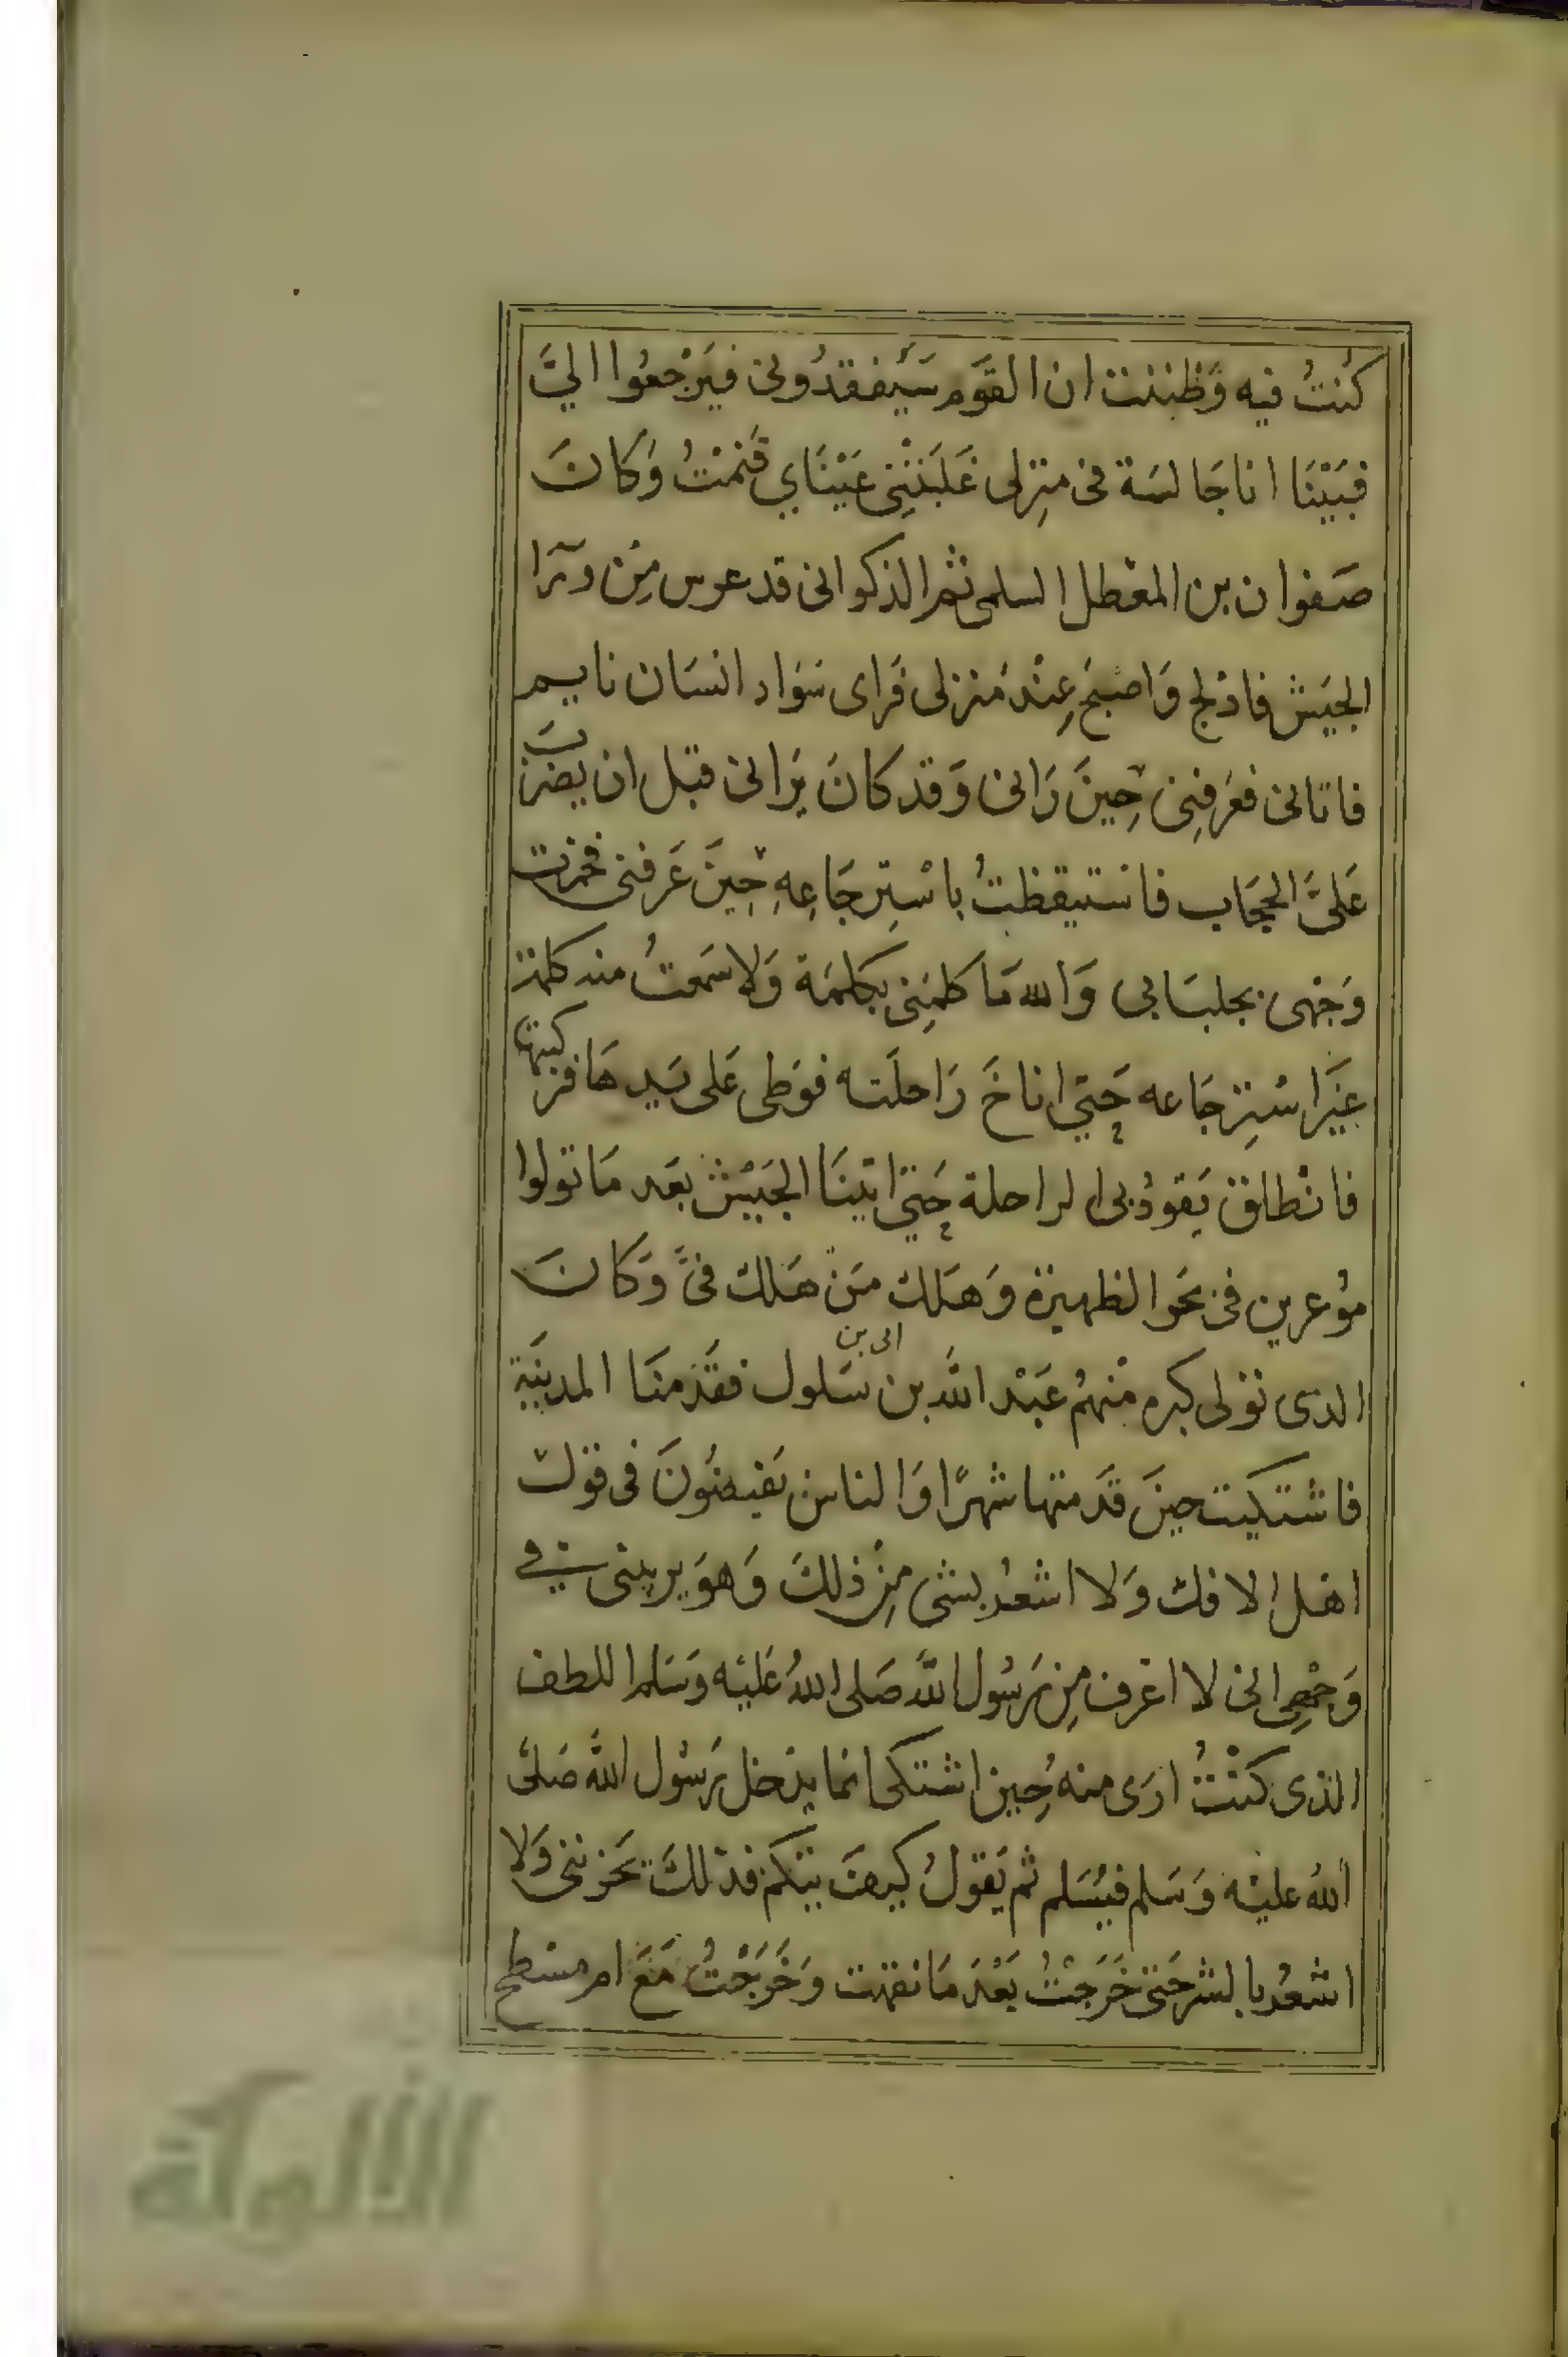 كُنتُ فيه وَظننت ان القوَم سَيفقدُونى فيَرْجعُوا اليَّ
فبَيْنَا انا جَالسَة فى منِزلى غَلبَتْنِى عَيْنَاي فَنمْتُ وَكانَ
صَفوان بن المعْطل السلمى ثم الذكوانى قد عرس مِن ورَا
الجيَش فادْلج وَاصْبحَ عِنْدَ مَنزلى فَراى سَوَاد انسَان نايم
فاتانى فعَرفِنى حِينَ رَانى وَقد كانَ يَرانى قبل ان يضرَبَ
عَلىَّ الحجَاب فاستيقظتُ باسْتِرجَاعِهِ حِينَ عَرفنى فخمرت
وَجْهى بجلبَابى وَالله مَا كلمَنِى بكلمَة وَلا سَمعتُ منه كلمة
غيَر اسْتِرجَاعه حَتي اناخَ رَاحلَته فوَطى عَلى يَدِهَا فركبتها
فانْطلق يَقودُ بى الراحلة حَتي اتينَا الجَيْش بعَد مَا نولوا
موُعرين فى نحَو الظهيرة وَهَلك مَن هَلك فىَّ وَكانَ
الذى تولى كبره منْهمُ عَبْد الله بن ابى بن سَلول فقَدْمنَا المدينَة
فاشتكيت حينَ قدَمتها شهرًا وَالناس يَفيضُونَ فى قول
اهَل الافك وَلا اشعرُ بشى مِن ذلكَ وَهوَ يريبنى فى
وَجْعِى انى لا اعْرف مِن رَسُول الله صَلى اللهُ عَليْه وَسَلم اللطف
الذى كنْتُ ارَى منه حِين اشتكى انما يدْخل رَسُول الله صَلىَ
اللهُ عليْه وَسَلم فيُسَلم ثم يَقولُ كيفَ تيكم فذلكَ يحَزننى وَلا
اشعُر بالشر حَتى خَرَجتُ بَعْدَ مَا نقهت وَخَرَجْتُ مَعَ ام مسْطح
الألوكة